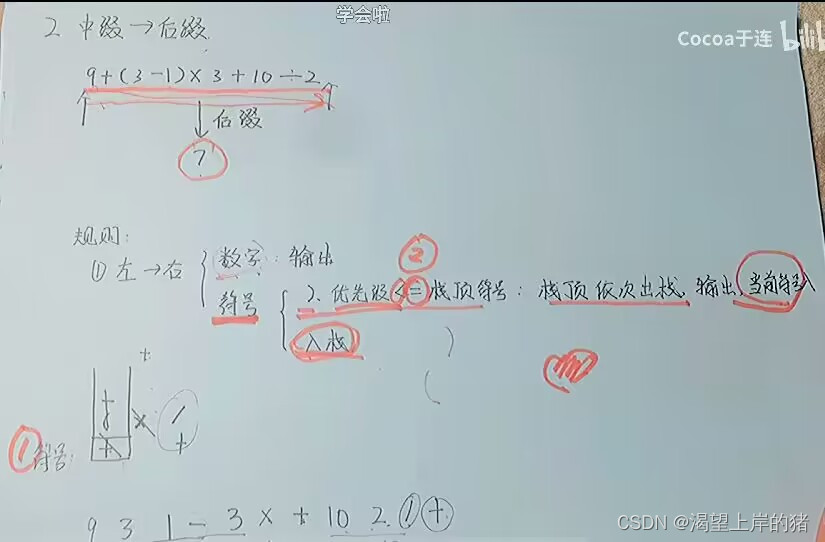 学会啦
2. 中缀→后缀.
Cocoa于连 bilib
9+(3-1)×3+10÷2
后缀
?
规则:
②
①左→右 数字: 输出
符号 ).优先级<=栈顶符号: 栈顶依次出栈.输出,当前符号入
入栈 )
(
+
+ × /
+ +
①符号:
9 3 1 - 3 × + 10 2 / +
CSDN @渴望上岸的猪